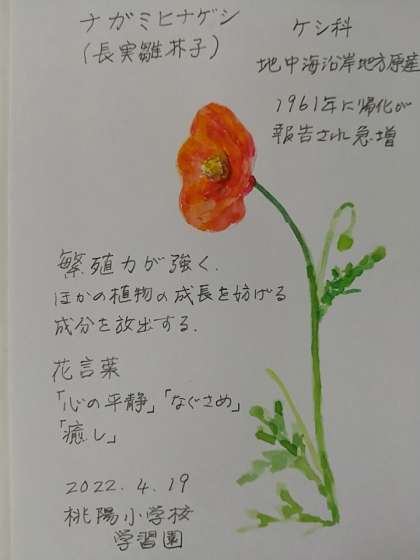 ナガミヒナゲシ
(長実雛芥子)
ケシ科
地中海沿岸地方原産
1961年に帰化が
報告され急増
繁殖力が強く、
ほかの植物の成長を妨げる
成分を放出する.
花言葉
「心の平静」「なぐさめ」
「癒し」
2022.4.19
桃陽小学校
学習園